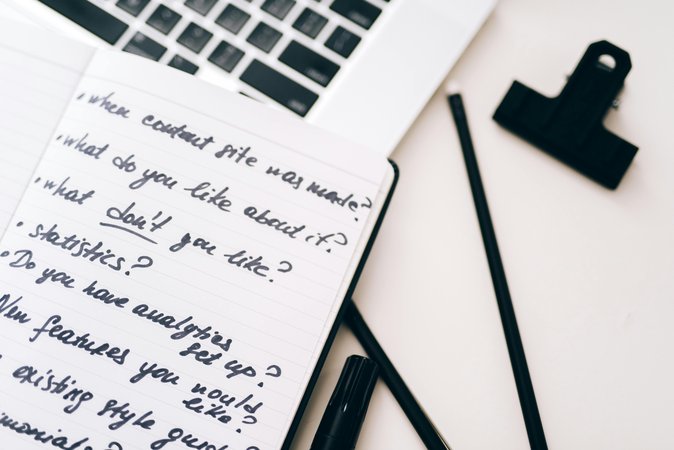 • when content site was made?
• what do you like about it?
• what don't you like?
• statistics?
• Do you have analytics
set up?
New features you would
like?
existing style guide?
imonials?